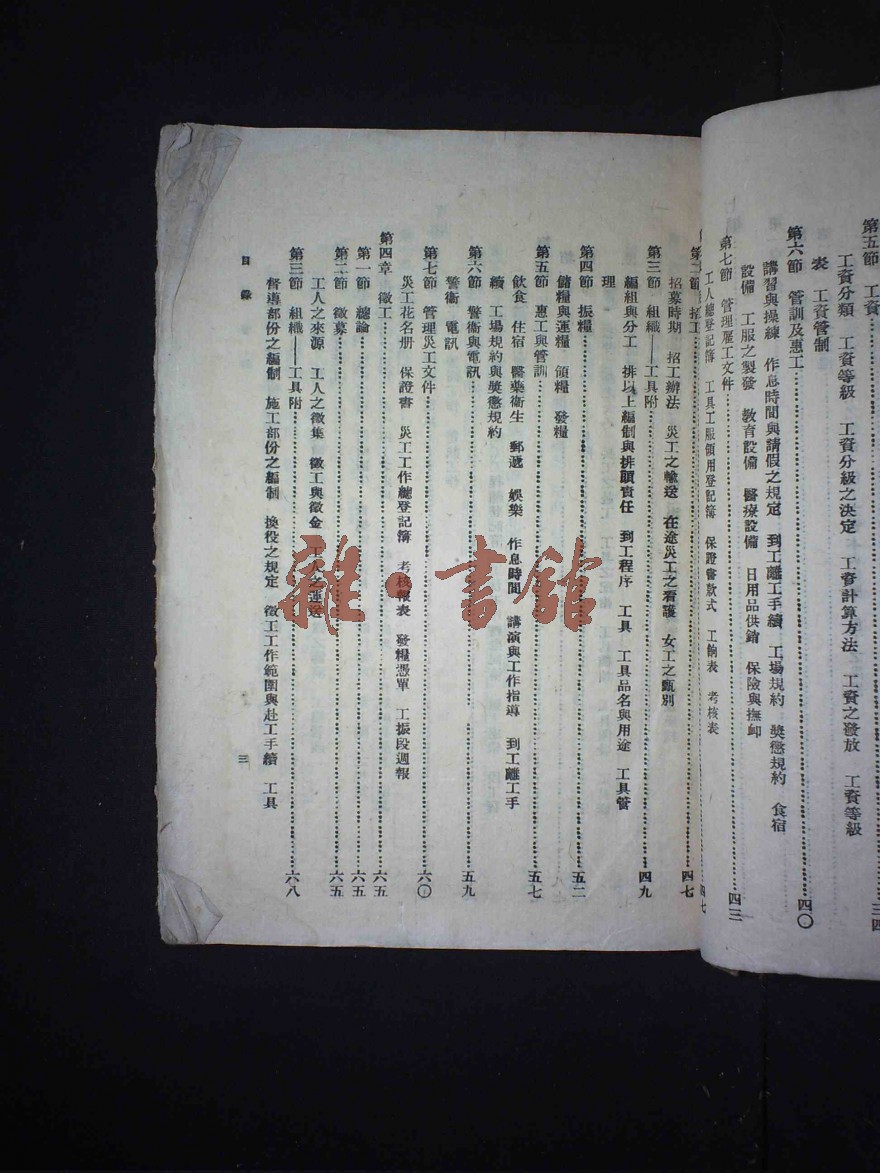 第五節 工資……三四
工資分類 工資等級 工資分級之決定 工資計算方法 工資之發放 工資等級
表 工資管制
第六節 管訓及惠工……四〇
講習與操練 作息時間與請假之規定 到工離工手續 工場規約 獎懲規約 食宿
設備 工服之製發 教育設備 醫療設備 日用品供銷 保險與撫卹
第七節 管理雇工文件……四三
工人總登記簿 工具工服領用登記簿 保證書款式 工餉表 考核表
四七
第二節 招工……四七
招募時期 招工辦法 災工之輸送 在途災工之看護 女工之甄別
第三節 組織——工具附……四九
編組與分工 排以上編制與排頭責任 到工程序 工具 工具品名與用途 工具管
理
第四節 振糧……五二
儲糧與運糧 領糧 發糧
第五節 惠工與管訓……五七
飲食 住宿 醫藥衛生 郵遞 娛樂 作息時間 講演與工作指導 到工離工手
續 工場規約與獎懲規約
第六節 警衛與電訊……五九
警衛 電訊
第七節 管理災工文件……六〇
災工花名册 保證書 災工工作總登記簿 考核報表 發糧憑單 工振段週報
第四章 徵工……六五
第一節 總論……六五
第二節 徵募……六五
工人之來源 工人之徵集 徵工與徵金 工人之運送
第三節 組織——工具附……六八
督導部份之編制 施工部份之編制 換役之規定 徵工工作範圍與赴工手續 工具
目錄 三
雜·書館